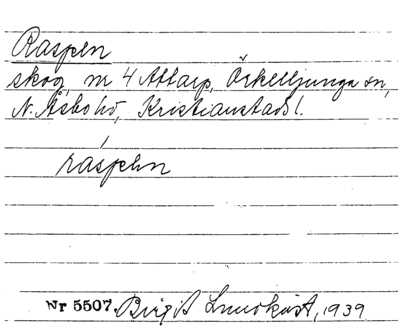 Raspen
skog, nr 4 Attarp, Örkelljunga sn,
N. Åsbo hd, Kristianstads l.
ráspən
Nr 5507. Birgit Lundkvist, 1939